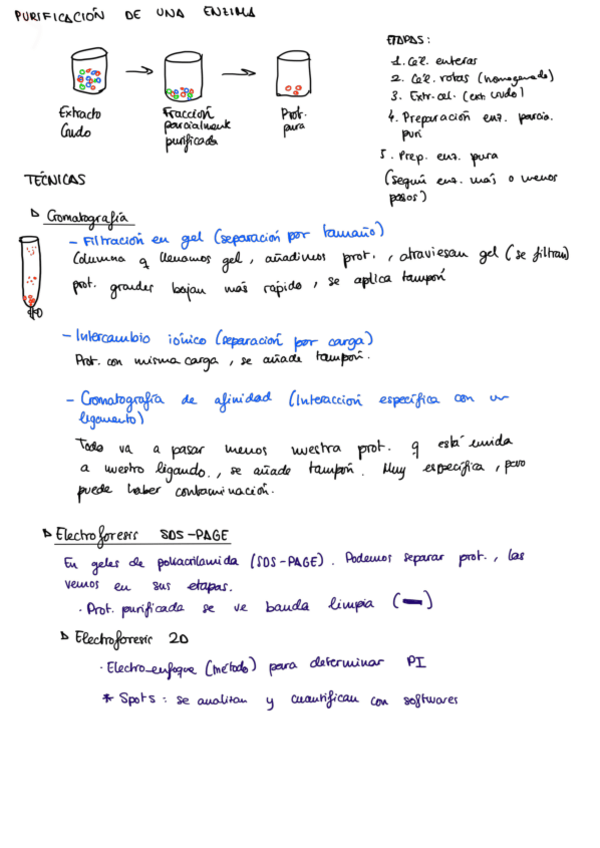 PURIFICACIÓN DE UNA ENZIMA
Extracto
Crudo
Fracción
parcialment
purificada
Prot.
pura
ETAPAS:
1. Cél. enteras
2. Cél. rotas (homogenado)
3. Extr. cel. (ext crudo)
4. Preparación enz. parcia.
puri
5. Prep. enz. pura
(según enz. más o menos
pasos)
TÉCNICAS
Cromatografía
- Filtración en gel (separación por tamaño)
Columna q llenamos gel, añadimos prot., atraviesan gel (se filtran)
prot. grandes bajan más rápido, se aplica tampón
- Intercambio iónico (separación por carga)
Prot. con misma carga, se añade tampón.
- Cromatografía de afinidad (Interacción específica con un
ligamento)
Todo va a pasar menos nuestra prot. q está unida
a nuestro ligando., se añade tampón. Muy específica, pero
puede haber contaminación.
Electroforesis SDS-PAGE
En geles de poliacrilamida (SDS-PAGE). Podemos separar prot., las
vemos en sus etapas.
· Prot. purificada se ve banda limpia (—)
Electroforesis 2D
· Electro_enfoque (método) para determinar PI
* Spots: se analizan y cuantifican con softwares